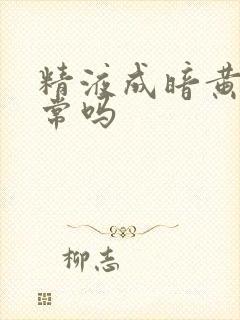 精液成暗黄
常吗
柳志